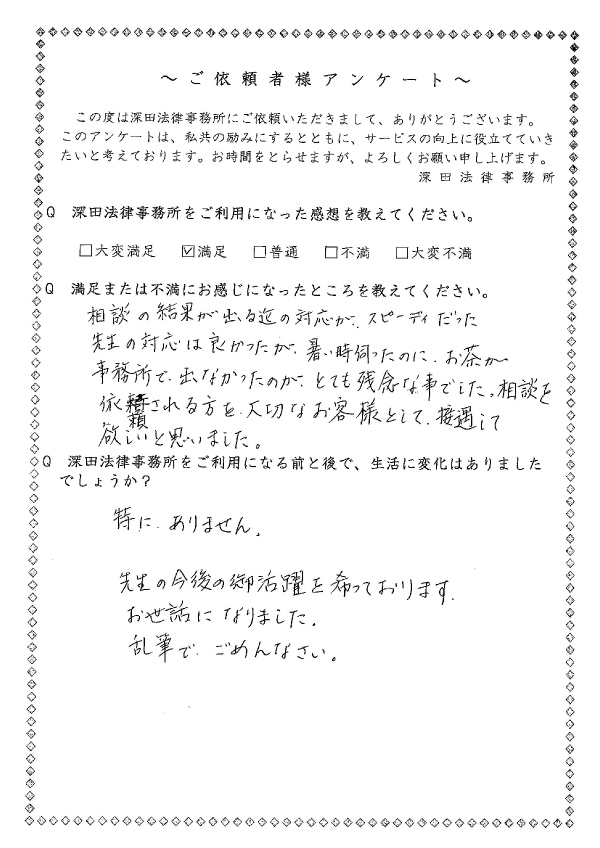 ～ご依頼者様アンケート～
この度は深田法律事務所にご依頼いただきまして、ありがとうございます。
このアンケートは、私共の励みにするとともに、サービスの向上に役立てていき
たいと考えております。お時間をとらせますが、よろしくお願い申し上げます。
深田法律事務所
Q 深田法律事務所をご利用になった感想を教えてください。
□大変満足 ☑満足 □普通 □不満 □大変不満
Q 満足または不満にお感じになったところを教えてください。
相談の結果が出る迄の対応が、スピーディだった
先生の対応は良かったが、暑い時伺ったのに、お茶が
事務所で、出なかったのが、とても残念な事でした。相談を
依頼される方を、大切なお客様として、接遇して
欲しいと思いました。
Q 深田法律事務所をご利用になる前と後で、生活に変化はありました
でしょうか？
特に、ありません。
先生の今後の御活躍を希っております。
お世話になりました。
乱筆で、ごめんなさい。